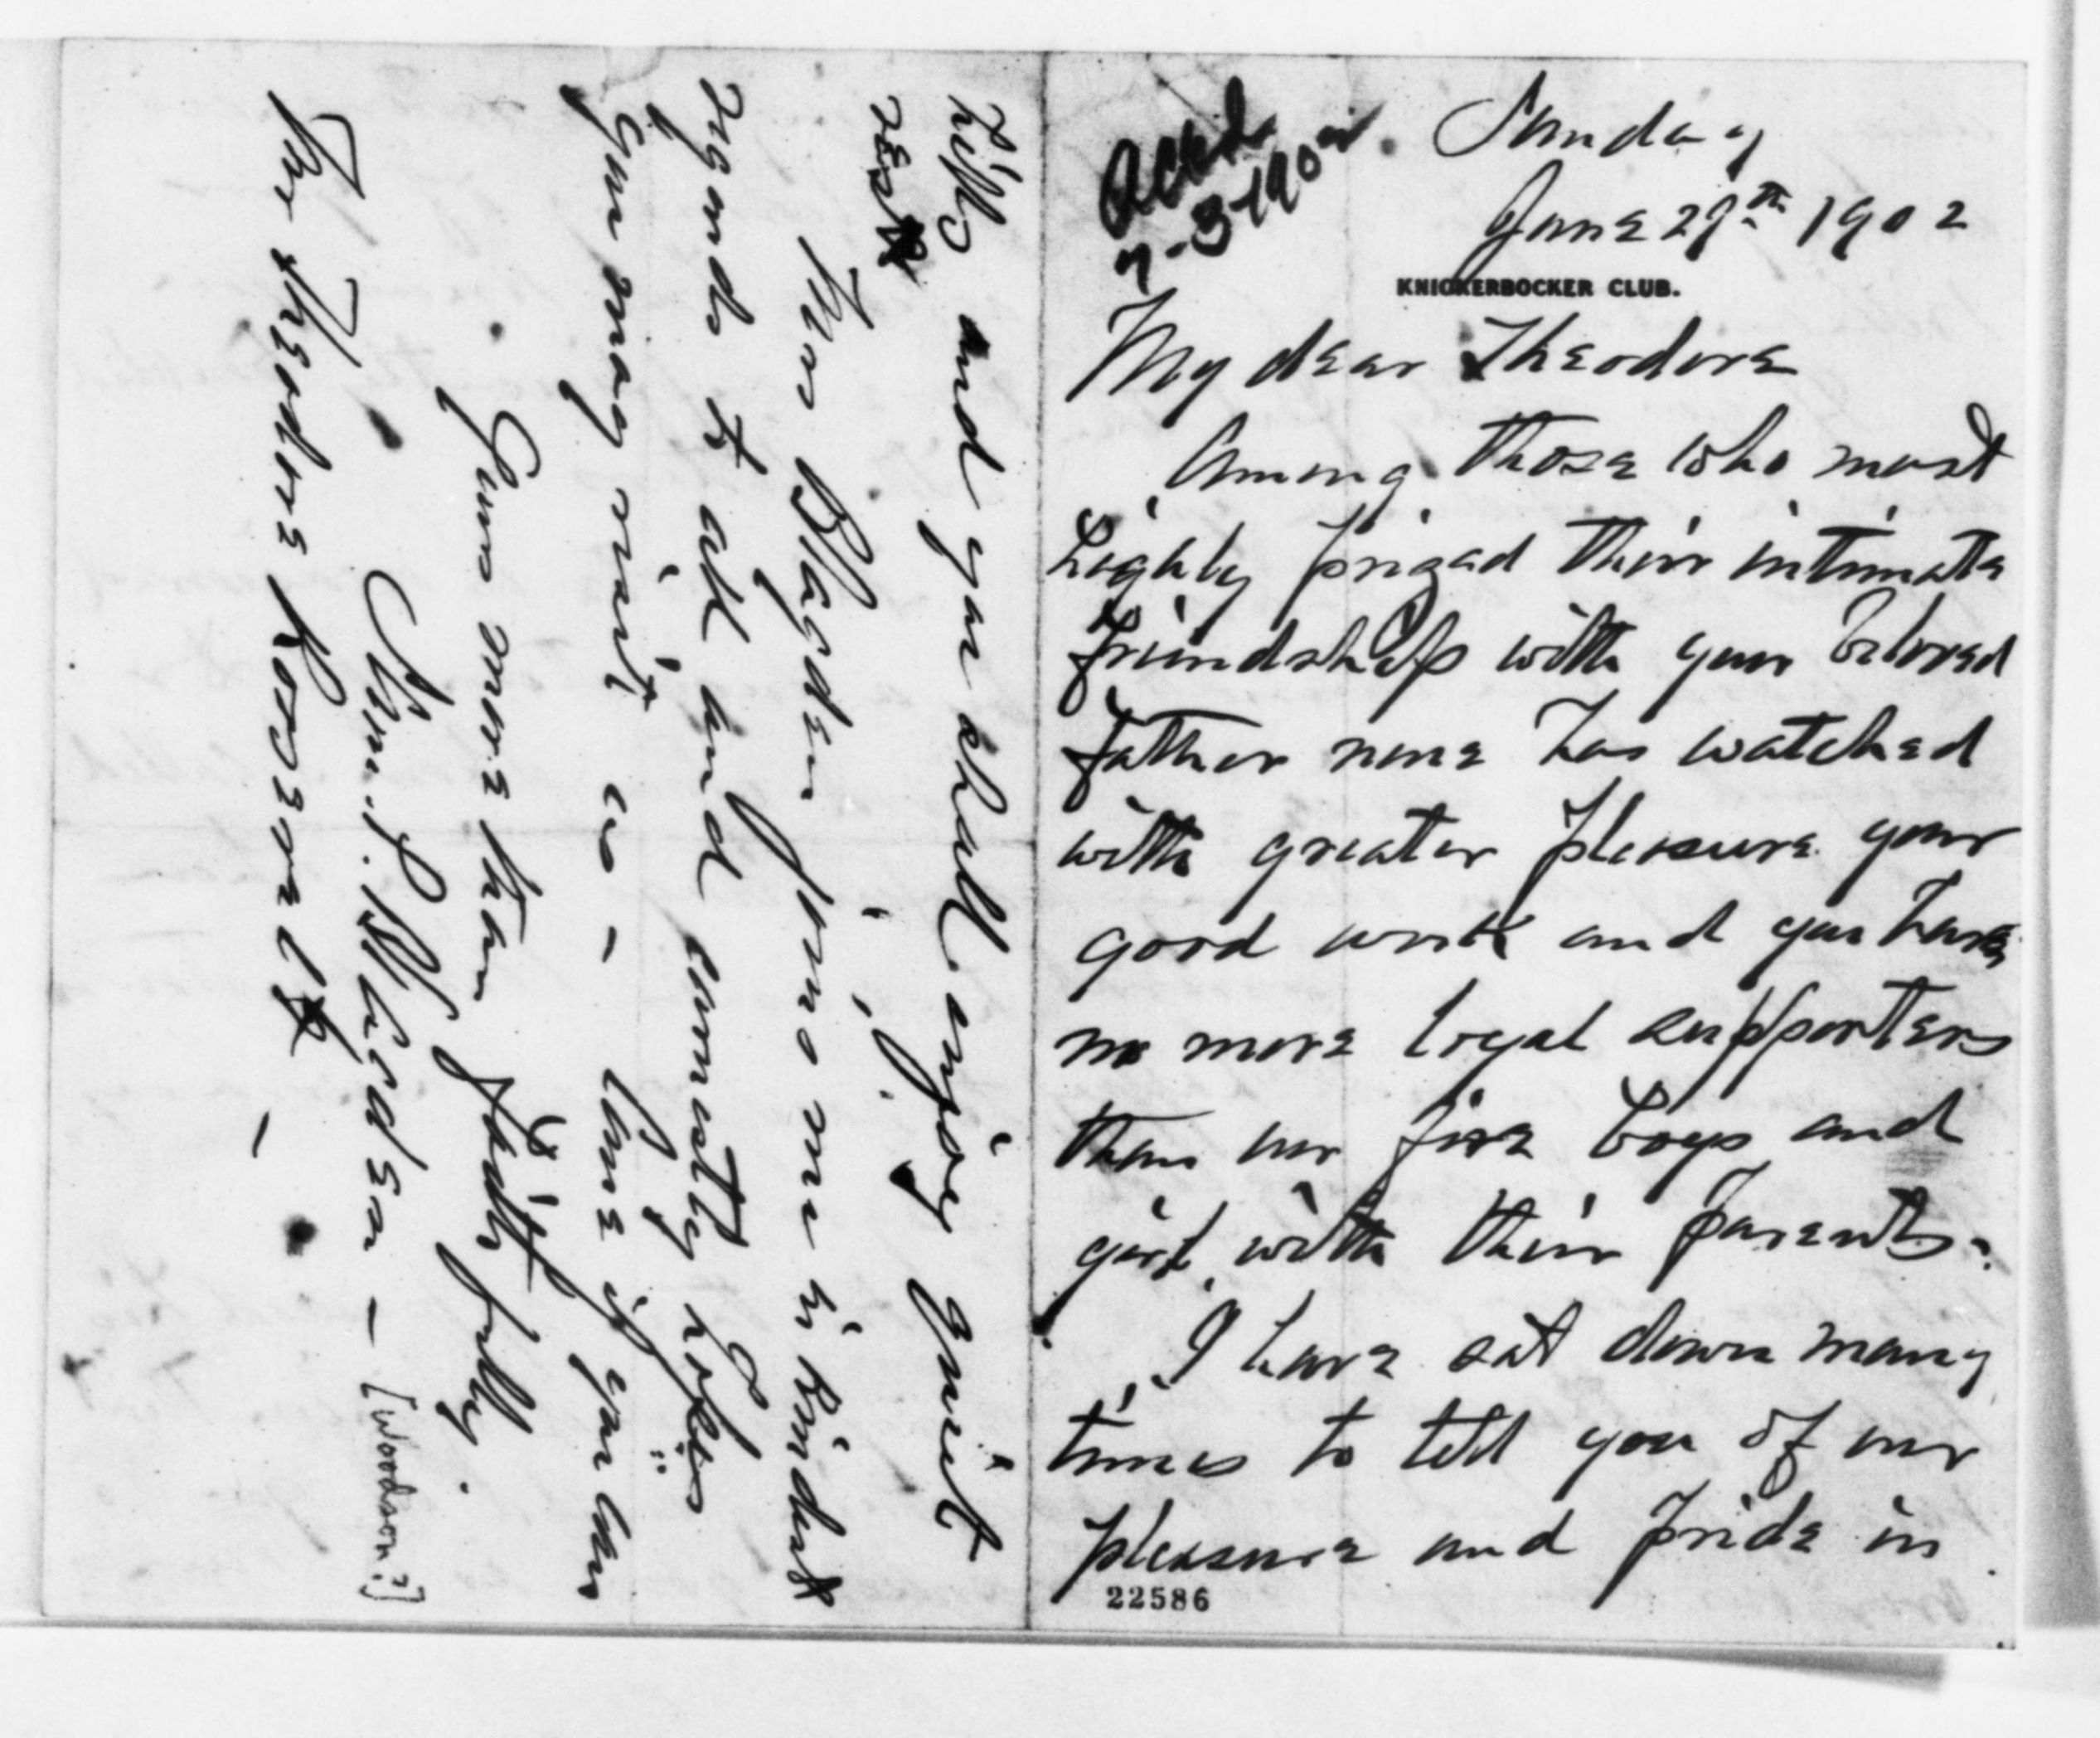 Ackd
7-3-1902.
Sunday
June 29th 1902
KNICKERBOCKER CLUB.
My dear Theodore
Among those who most
highly prized their intimate
friendship with your beloved
father none has watched
with greater pleasure your
good work and you have
no more loyal supporters
than our five boys and
girl with their parents.
I have sat down many
times to tell you of our
pleasure and pride in
22586
hills and you shall enjoy quiet
rest
Mrs Blagden joins me in kindest
regards to all and earnestly hopes
you may visit us - Come if you can
Yours more than faithfully
Saml. P. Blagden - [Woodson?]
For Theodore Roosevelt -